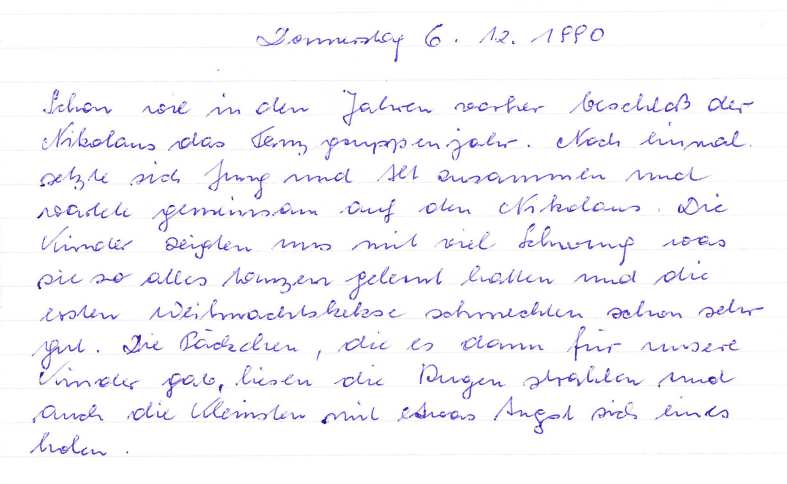 Donnerstag 6. 12. 1990
Schon wie in den Jahren vorher beschloß der
Nikolaus das Tanzgruppenjahr. Noch einmal
setzte sich Jung und Alt zusammen und
wartete gemeinsam auf den Nikolaus. Die
Kinder zeigten uns mit viel Schwung was
sie so alles tanzen gelernt hatten und die
ersten Weihnachtskekse schmeckten schon sehr
gut. Die Päckchen, die es dann für unsere
Kinder gab, liesen die Augen strahlen und
auch die Kleinsten mit etwas Angst sich eines
holen.